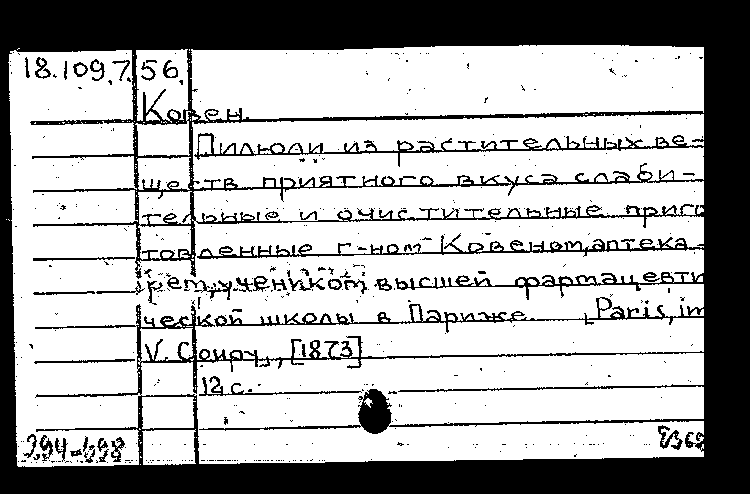 18.109.7.56.
Ковен.
Пилюли из растительных ве-
ществ приятного вкуса слаби-
тельные и очистительные приго
товленные г-ном Ковеном, аптека-
рем, учеником высшей фармацевти
ческой школы в Париже. [Paris, im
V. Goupy], [1873]
12 с.
294-698